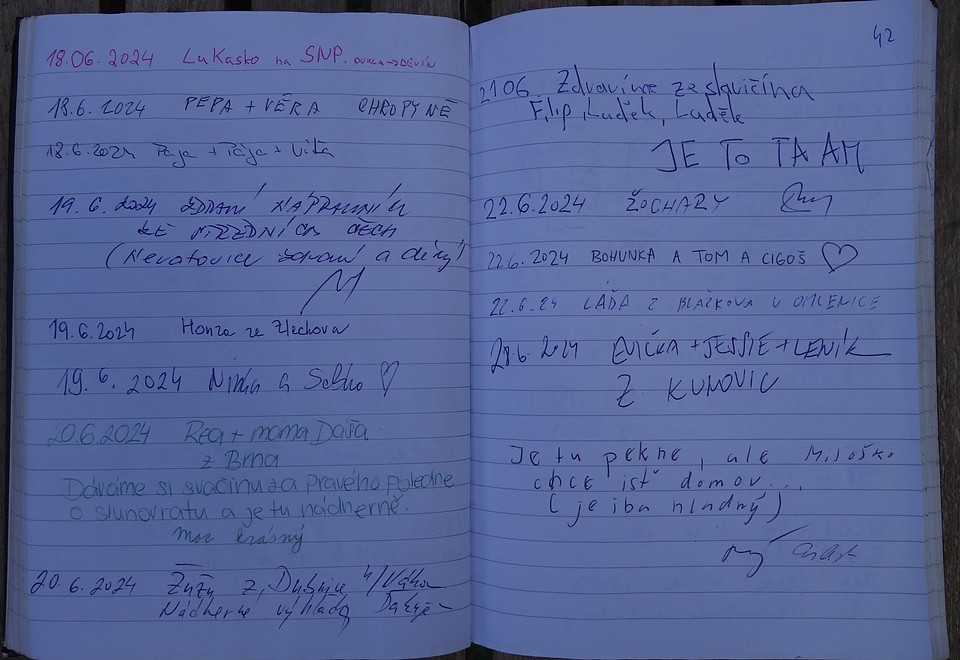 18.06.2024 LuKasko na SNP. DUKLA→DEVÍN
18.6.2024 PEPA + VĚRA CHROPYNĚ
18.6.2024 Pája + Tája + Vítá
19.6.2024 ZDRAVÍ
ZE STŘEDNÍCH ČECH
(Nevotovice zdraví a díky)
19.6.2024 Honza ze Zlechova
19.6.2024 Ninka a ♡
20.6.2024 Rea + mama Dáša
z Brna
Dáváme si svačinu za pravého poledne
o slunovratu a je tu nádherně.
moc krásný
20.6.2024 Zuzu z Dubnice n/Váhom
Nádherné výhľady Ďakuje
42
21.06. Zdravíme ze slavičína
Filip, Luděk, Luděk
JE TO TAAM
22.6.2024 ŽOCHARY
22.6.2024 BOHUNKA A TOM A CIGOŠ ♡
22.6.24 LÁĎA Z BLAŽKOVA U OMLENICE
28.6.2024 EVIČKA + JESSIE + LENÍK
Z KUNOVIC
Je tu pekne, ale Miloško
chce isť domov...
(je iba hladný)